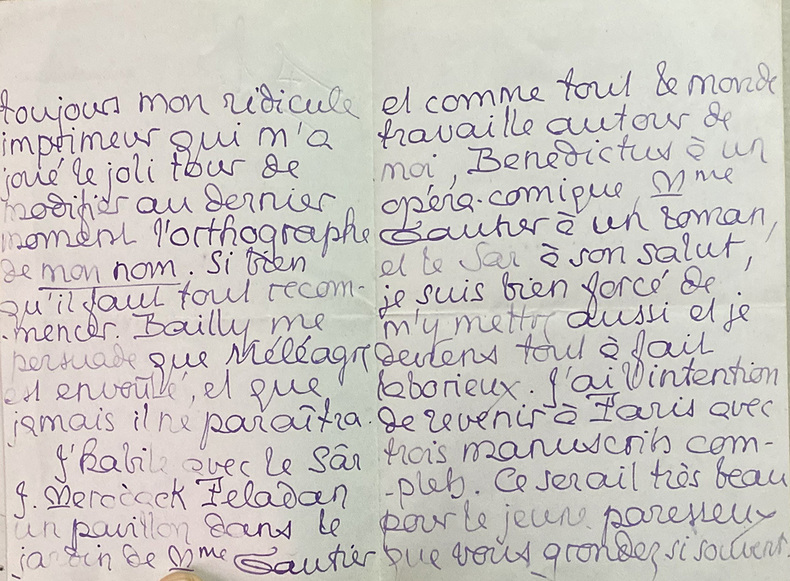 toujours mon ridicule
imprimeur qui m'a
joué le joli tour de
modifier au dernier
moment l'orthographe
de mon nom. Si bien
qu'il faut tout recom-
-mencer. Bailly me
persuade que Méléagre
est envoûté, et que
jamais il ne paraîtra.
J'habite avec le Sâr
J. Merodack Peladan
un pavillon dans le
jardin de Mme Gautier
et comme tout le monde
travaille autour de
moi, Benedictus à un
opéra-comique, Mme
Gautier à un roman,
et le Sar à son salut,
je suis bien forcé de
m'y mettre aussi et je
deviens tout à fait
laborieux. J'ai l'intention
de revenir à Paris avec
trois manuscrits com-
-plets. Ce serait très beau
pour le jeune paresseux
que vous grondez si souvent.